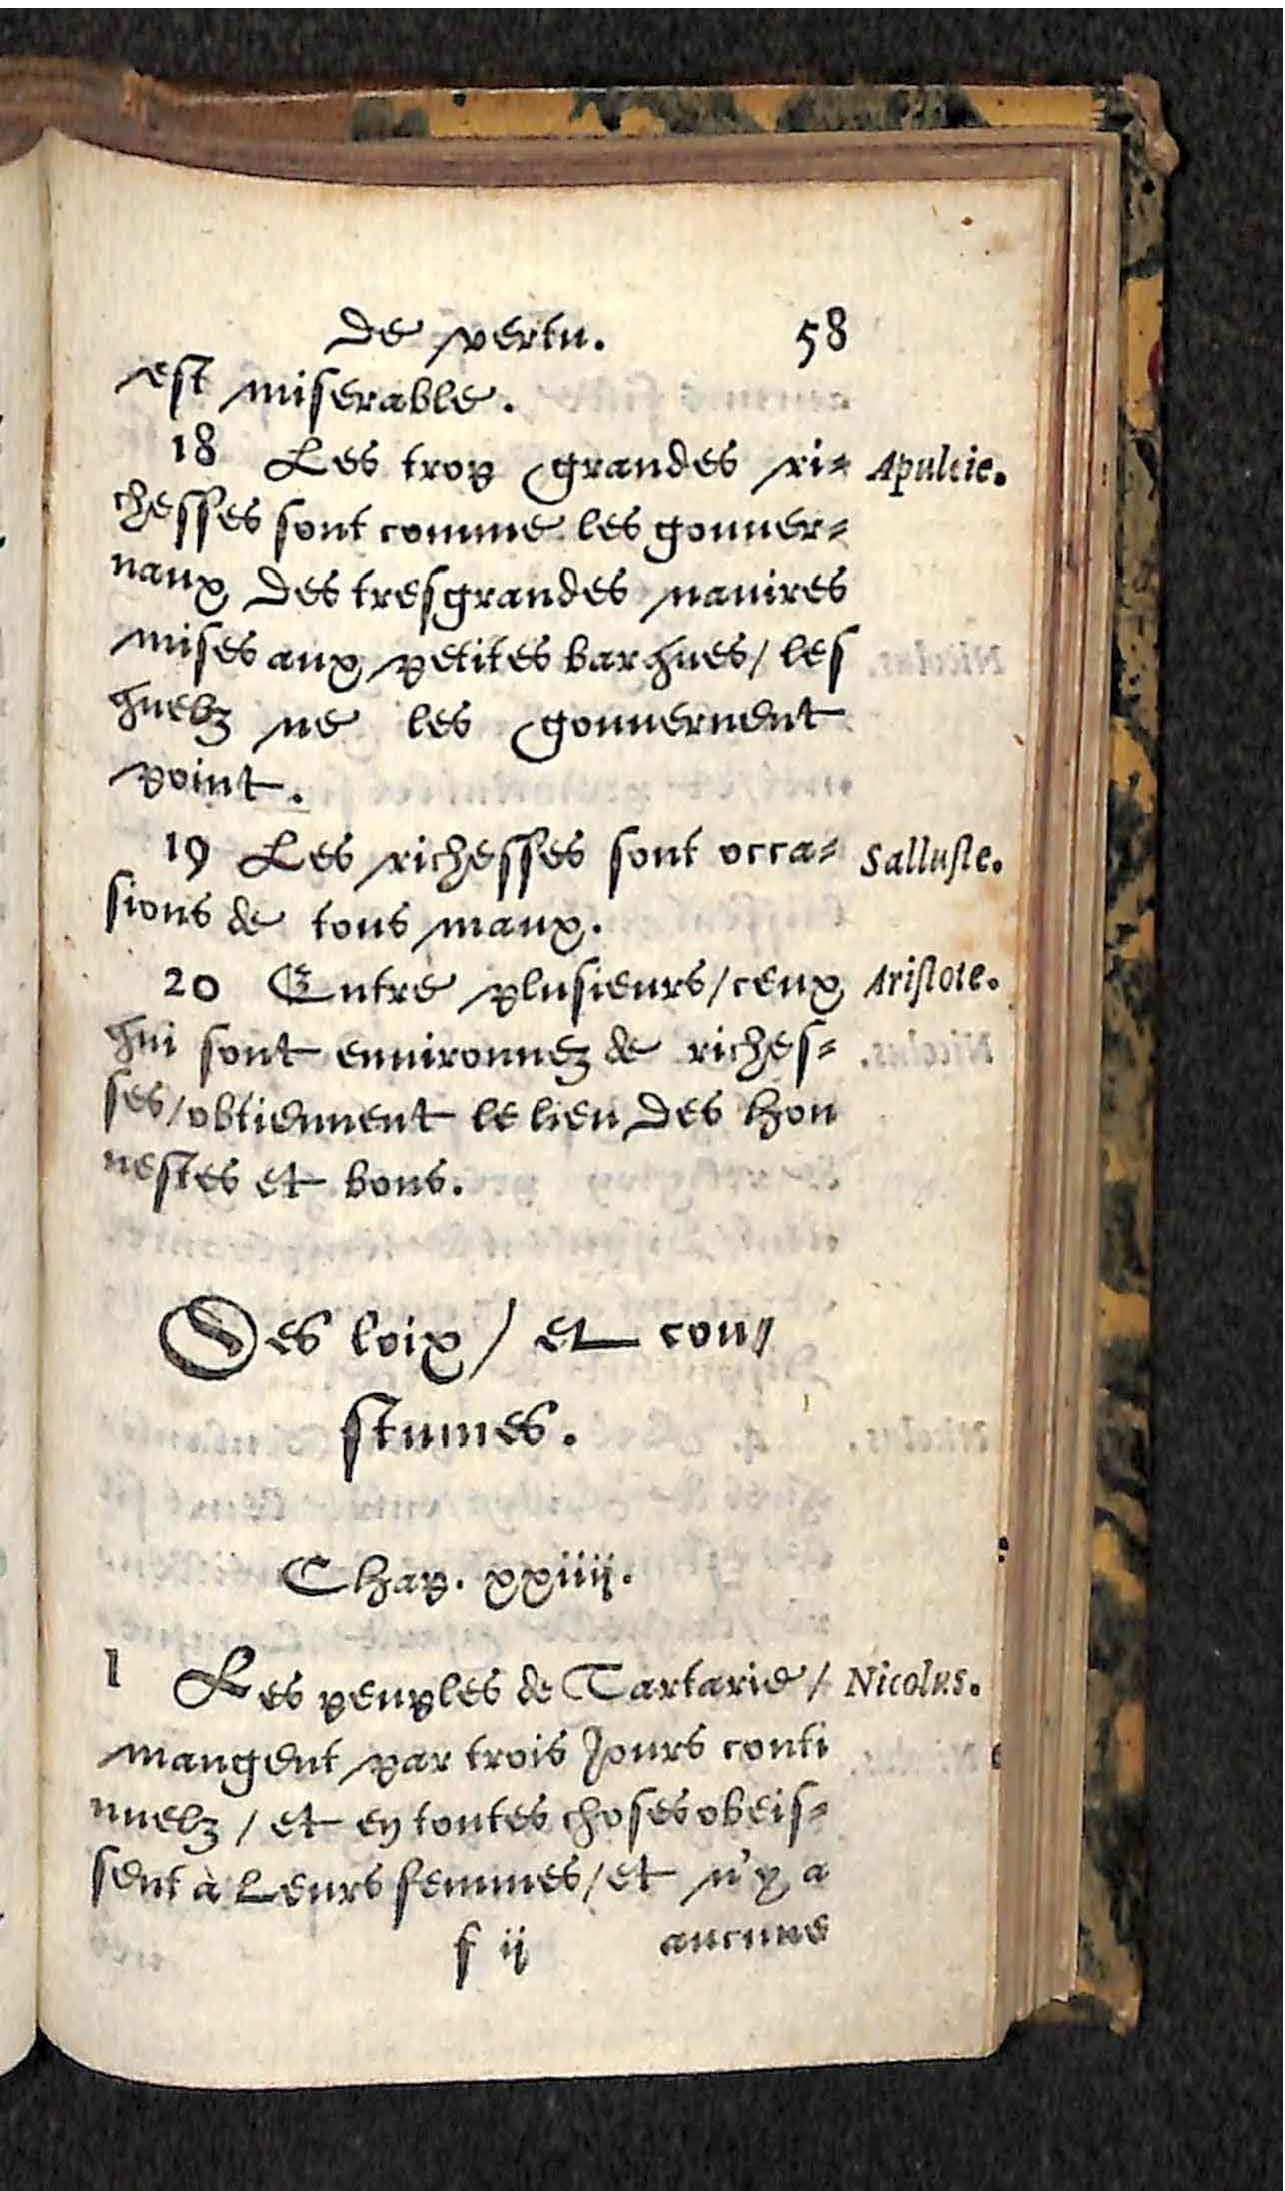 de vertu. 58
est miserable.
18 Les trop grandes ri= Apuleie.
chesses sont comme les gouuer=
naux des tresgrandes nauires
mises aux petites barques/ les
quelz ne les gouuernent
point.
19 Les richesses sont occa= Salluste.
sions de tous maux.
20 Entre plusieurs/ceux Aristote.
qui sont enuironnez de riches=
ses/obtiennent le lieu des hon
nestes et bons.
Des loix/ et cou=
stumes.
Chap. xxiiij.
1 Les peuples de Tartarie/ Nicolus.
mangent par trois Jours conti
nuelz/ et en toutes choses obeis=
sent à Leurs femmes/et n'y a
f ij aucune